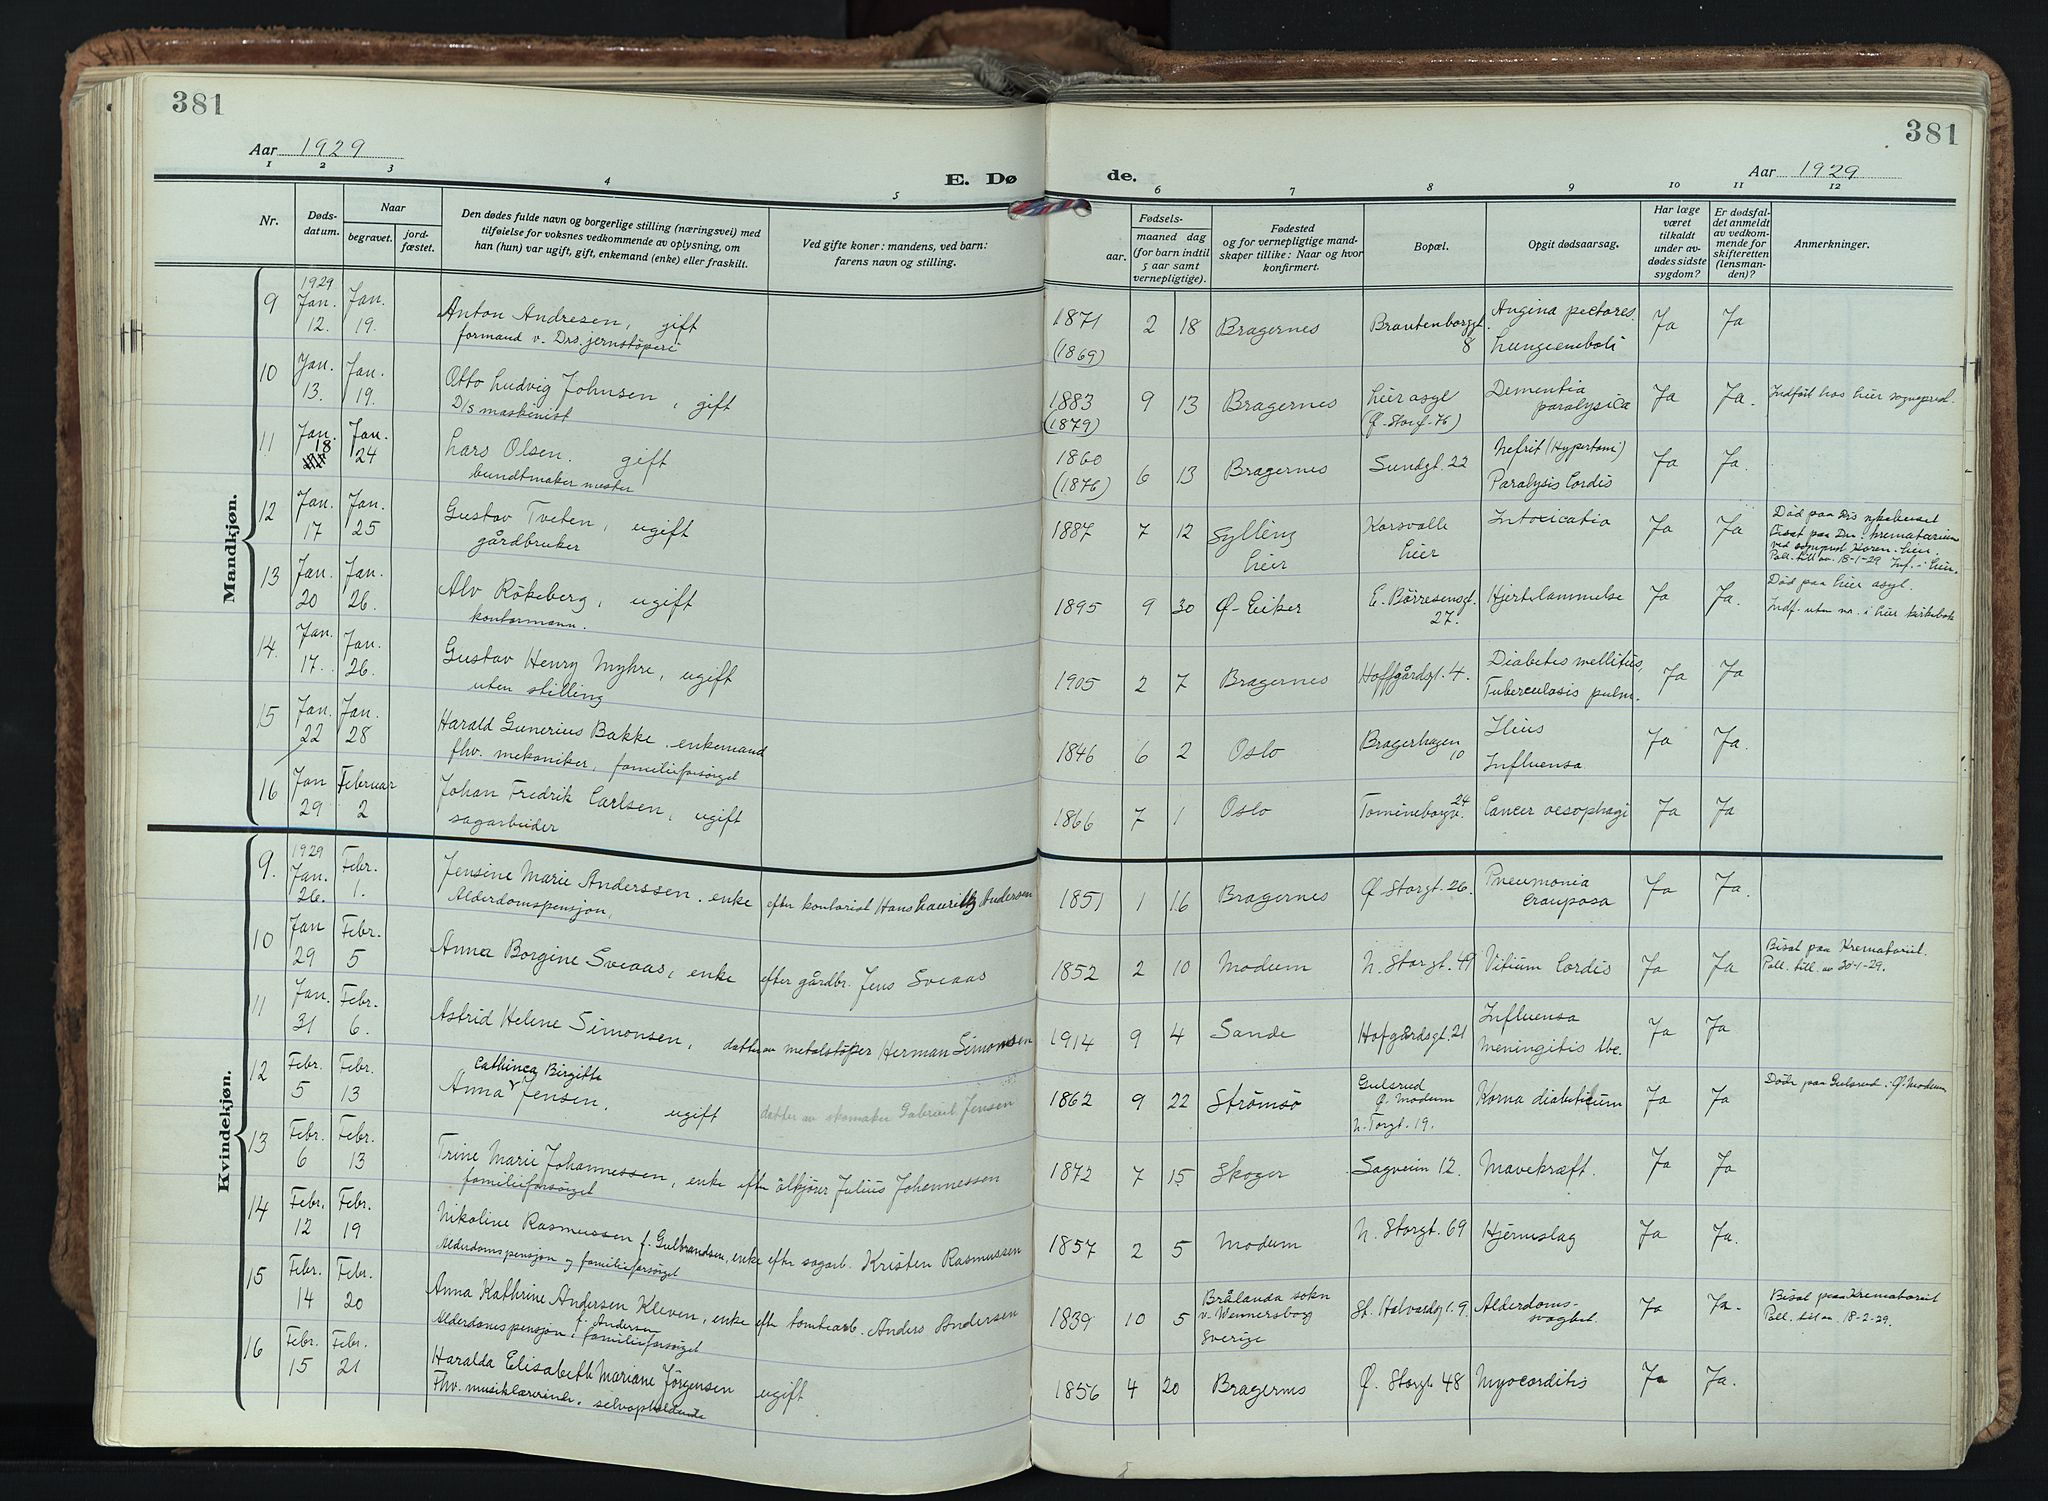 381
381
Aar 1929
Aar 1929
E. Døde.
1 2 3 4 5 6 7 8 9 10 11 12
Nr.
Døds-
datum.
Naar
begravet.
jord-
fæstet.
Den dødes fulde navn og borgerlige stilling (næringsvei) med
tilføielse for voksnes vedkommende av oplysning, om
han (hun) var ugift, gift, enkemand (enke) eller fraskilt.
Ved gifte koner: mandens, ved barn:
farens navn og stilling.
Fødsels-
aar. maaned dag
(for barn indtil
5 aar samt
vernepligtige).
Fødested
og for vernepligtige mand-
skaper tillike: Naar og hvor
konfirmert.
Bopæl.
Opgit dødsaarsag.
Har læge
været
tilkaldt
under av-
dødes sidste
sygdom?
Er dødsfal-
det anmeldt
av vedkom-
mende for
skifteretten
(lensman-
den)?
Anmerkninger.
Mandkjøn.
1929
9 Jan. 12. Jan. 19. Anton Andresen, gift 1871 2 18 Bragernes Brautenborggt. 8 Angina pectores. Ja Ja
formand v. Drs. jernstöperi (1869) Lungeemboli
10 Jan. 13. Jan. 19. Otto Ludvig Johnsen, gift 1883 9 13 Bragernes Lier asyl Dementia paralysica Ja Ja. Indført hos Lier sogneprest.
D/s maskinist (1879) (Ø. Storg. 76)
11 Jan. 18 Jan. 24 Lars Olsen. gift 1860 6 13 Bragernes Sundgt. 22 Nefrit (Hypertoni) Ja Ja.
bundtmaker mester (1876) Paralysis Cordis
12 Jan. 17 Jan. 25 Gustav Tveten, ugift 1887 7 12 Sylling Lier Korsvolle Lier Intoxicatio Ja Ja Død paa Drs sykehuset
gårdbruker Bisat paa Dr. krematorium
ved sogneprst Koren. Lier.
Poll. till av 18-1-29 Inf. i Lier.
13 Jan. 20 Jan. 26. Alv Rökeberg, ugift 1895 9 30 Ø. Eiker E. Börresensgt. 27. Hjertelammelse Ja Ja. Död paa Lier asyl.
kontormann. Indf. uten nr. i Lier kirkebok
14. Jan. 17. Jan. 26. Gustav Henry Myhre, ugift 1905 2 7 Bragernes Hoffgårdsgt. 4. Diabetes mellitus, Ja Ja
uten stilling Tuberculosis pulm.
15 Jan. 22 Jan. 28 Harald Gunerius Bakke. enkemand 1846 6 2 Oslo Bragerhagen 10 Ilius Ja Ja.
fhv. mekaniker, familieforsörget Influensa
16 Jan 29 Februar 2 Johan Fredrik Carlsen, ugift 1866 7 1 Oslo Tomineborgv. 24 Cancer oesophagi Ja Ja
sagarbeider
Kvindekjøn.
1929
9. Jan. 26. Febr. 1. Jensine Marie Anderssen. enke efter kontorist Hans Lauritz Andersen 1851 1 16 Bragernes Ø Storgt. 26. Pneumonia crouposa Ja Ja.
Alderdomspensjon,
10 Jan 29 Febr. 5 Anna Borgine Sveaas, enke efter gårdbr. Jens Sveaas 1852 2 10 Modum N. Storgt. 49 Vitium Cordis Ja Ja Bisat paa Krematoriet.
Poll. till. av 30-1-29.
11 Jan. 31 Febr. 6. Astrid Helene Simonsen, datter av metalstöper Herman Simonsen 1914 9 4 Sande Hofgårdsgt. 21 Influensa Ja Ja
meningitis tbc.
12 Febr. 5 Febr. 13 Cathinca Birgitte
Anna Jensen. ugift datter av skomaker Gabriel Jensen 1862 9 22 Strømsø Gulsrud Ø. Modum Koma diabeticum Ja Ja Döde paa Gulsrud i Ø. Modum
N. Torgt. 19.
13 Febr. 6 Febr. 13 Trine Marie Johannessen, enke efter ölkjører Julius Johannessen 1872 7 15 Skoger Sagveien 12. Mavekræft. Ja Ja
familieforsörget
14 Febr. 12 Febr. 19 Nikoline Rasmussen f. Gulbrandsen, enke efter sagarb. Kristen Rasmussen 1857 2 5 Modum N. Storgt. 69 Hjerneslag Ja Ja.
Alderdomspensjon og familieforsörget
15 Febr. 14 Febr. 20 Anna Kathrine Andersen Kleven, enke efter tomtearb. Anders Andersen 1839 10 5 Brålanda sokn v. Wennersborg Sverige St. Halvardsg. 9. Alderdoms-svaghet. Ja Ja. Bisat paa Krematoriet
f. Andersen Poll. till av. 18-2-29.
Alderdomspensjon. familieforsörget
16 Febr. 15 Febr. 21 Haralda Elisabeth Mariane Jörgensen ugift 1856 4 20 Bragernes Ø. Storgt 48 Myocorditis Ja Ja.
Fhv. musiklærerinde. selvopholdende